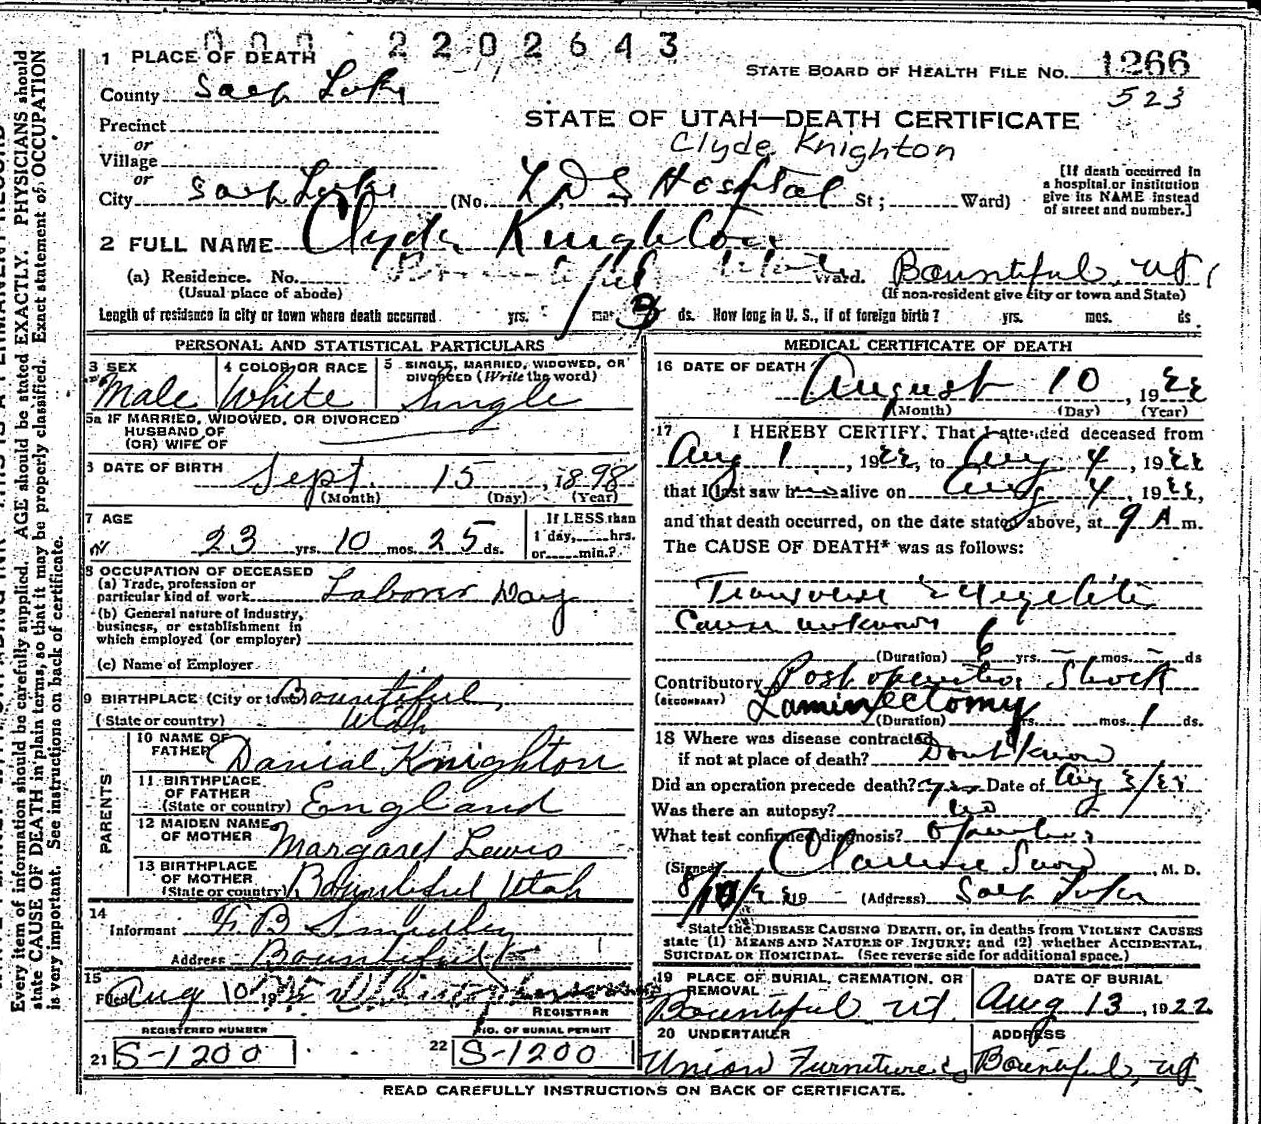 000 2202643
1 PLACE OF DEATH
STATE BOARD OF HEALTH FILE NO. 1266
County Salt Lake
523
STATE OF UTAH—DEATH CERTIFICATE
Precinct
Clyde Knighton
or
Village
or
City Salt Lake (No. L D S Hospital St; Ward)
[If death occurred in
a hospital or institution
give its NAME instead
of street and number.]
2 FULL NAME Clyde Knighton
(a) Residence. No. Bountiful Utah Ward. Bountiful, Ut
(Usual place of abode) (If non-resident give city or town and State)
Length of residence in city or town where death occurred yrs. mos. 3 ds. How long in U. S., if of foreign birth? yrs. mos. ds.
PERSONAL AND STATISTICAL PARTICULARS
3 SEX
Male
4 COLOR OR RACE
White
5 SINGLE, MARRIED, WIDOWED, OR
DIVORCED (Write the word)
Single
5a IF MARRIED, WIDOWED, OR DIVORCED
HUSBAND OF
(OR) WIFE OF
6 DATE OF BIRTH Sept. 15, 1898
(Month) (Day) (Year)
7 AGE
23 yrs. 10 mos. 25 ds.
If LESS than
1 day, hrs.
or min.?
8 OCCUPATION OF DECEASED
(a) Trade, profession or
particular kind of work Laborer Day
(b) General nature of industry,
business, or establishment in
which employed (or employer)
(c) Name of Employer
9 BIRTHPLACE (City or town) Bountiful,
(State or country) Utah
PARENTS
10 NAME OF
FATHER Danial Knighton
11 BIRTHPLACE
OF FATHER
(State or country) England
12 MAIDEN NAME
OF MOTHER Margaret Lewis
13 BIRTHPLACE
OF MOTHER
(State or country) Bountiful Utah
14
Informant B Smedley
Address Bountiful
15
Filed Aug 10 19
REGISTRAR
REGISTERED NUMBER
21 S-1200
NO. OF BURIAL PERMIT
22 S-1200
MEDICAL CERTIFICATE OF DEATH
16 DATE OF DEATH August 10, 1922
(Month) (Day) (Year)
17 I HEREBY CERTIFY, That I attended deceased from
Aug 1, 1922, to Aug 4, 1922
that I last saw h alive on Aug 4, 1922,
and that death occurred, on the date stated above, at 9 A m.
The CAUSE OF DEATH* was as follows:
Transverse Myelitis
Cause unknown
(Duration) 6 yrs. – mos. – ds
Contributory Post operative Shock
(SECONDARY) Laminectomy
(Duration) yrs. mos. 1 ds.
18 Where was disease contracted
if not at place of death? Dont know
Did an operation precede death? yes Date of Aug 3/22
Was there an autopsy? no
What test confirmed diagnosis? Operation
(Signed) Clarence Snow, M. D.
8/10/22 19 (Address) Salt Lake
*State the DISEASE CAUSING DEATH, or, in deaths from VIOLENT CAUSES
state (1) MEANS AND NATURE OF INJURY; and (2) whether ACCIDENTAL,
SUICIDAL OR HOMICIDAL. (See reverse side for additional space.)
19 PLACE OF BURIAL, CREMATION, OR
REMOVAL
Bountiful Ut.
DATE OF BURIAL
Aug 13, 1922
20 UNDERTAKER
Union Furniture Co
ADDRESS
Bountiful, Ut
READ CAREFULLY INSTRUCTIONS ON BACK OF CERTIFICATE.
Every item of information should be carefully supplied. AGE should be stated EXACTLY. PHYSICIANS should
state CAUSE OF DEATH in plain terms, so that it may be properly classified. Exact statement of OCCUPATION
is very important. See instructions on back of certificate.